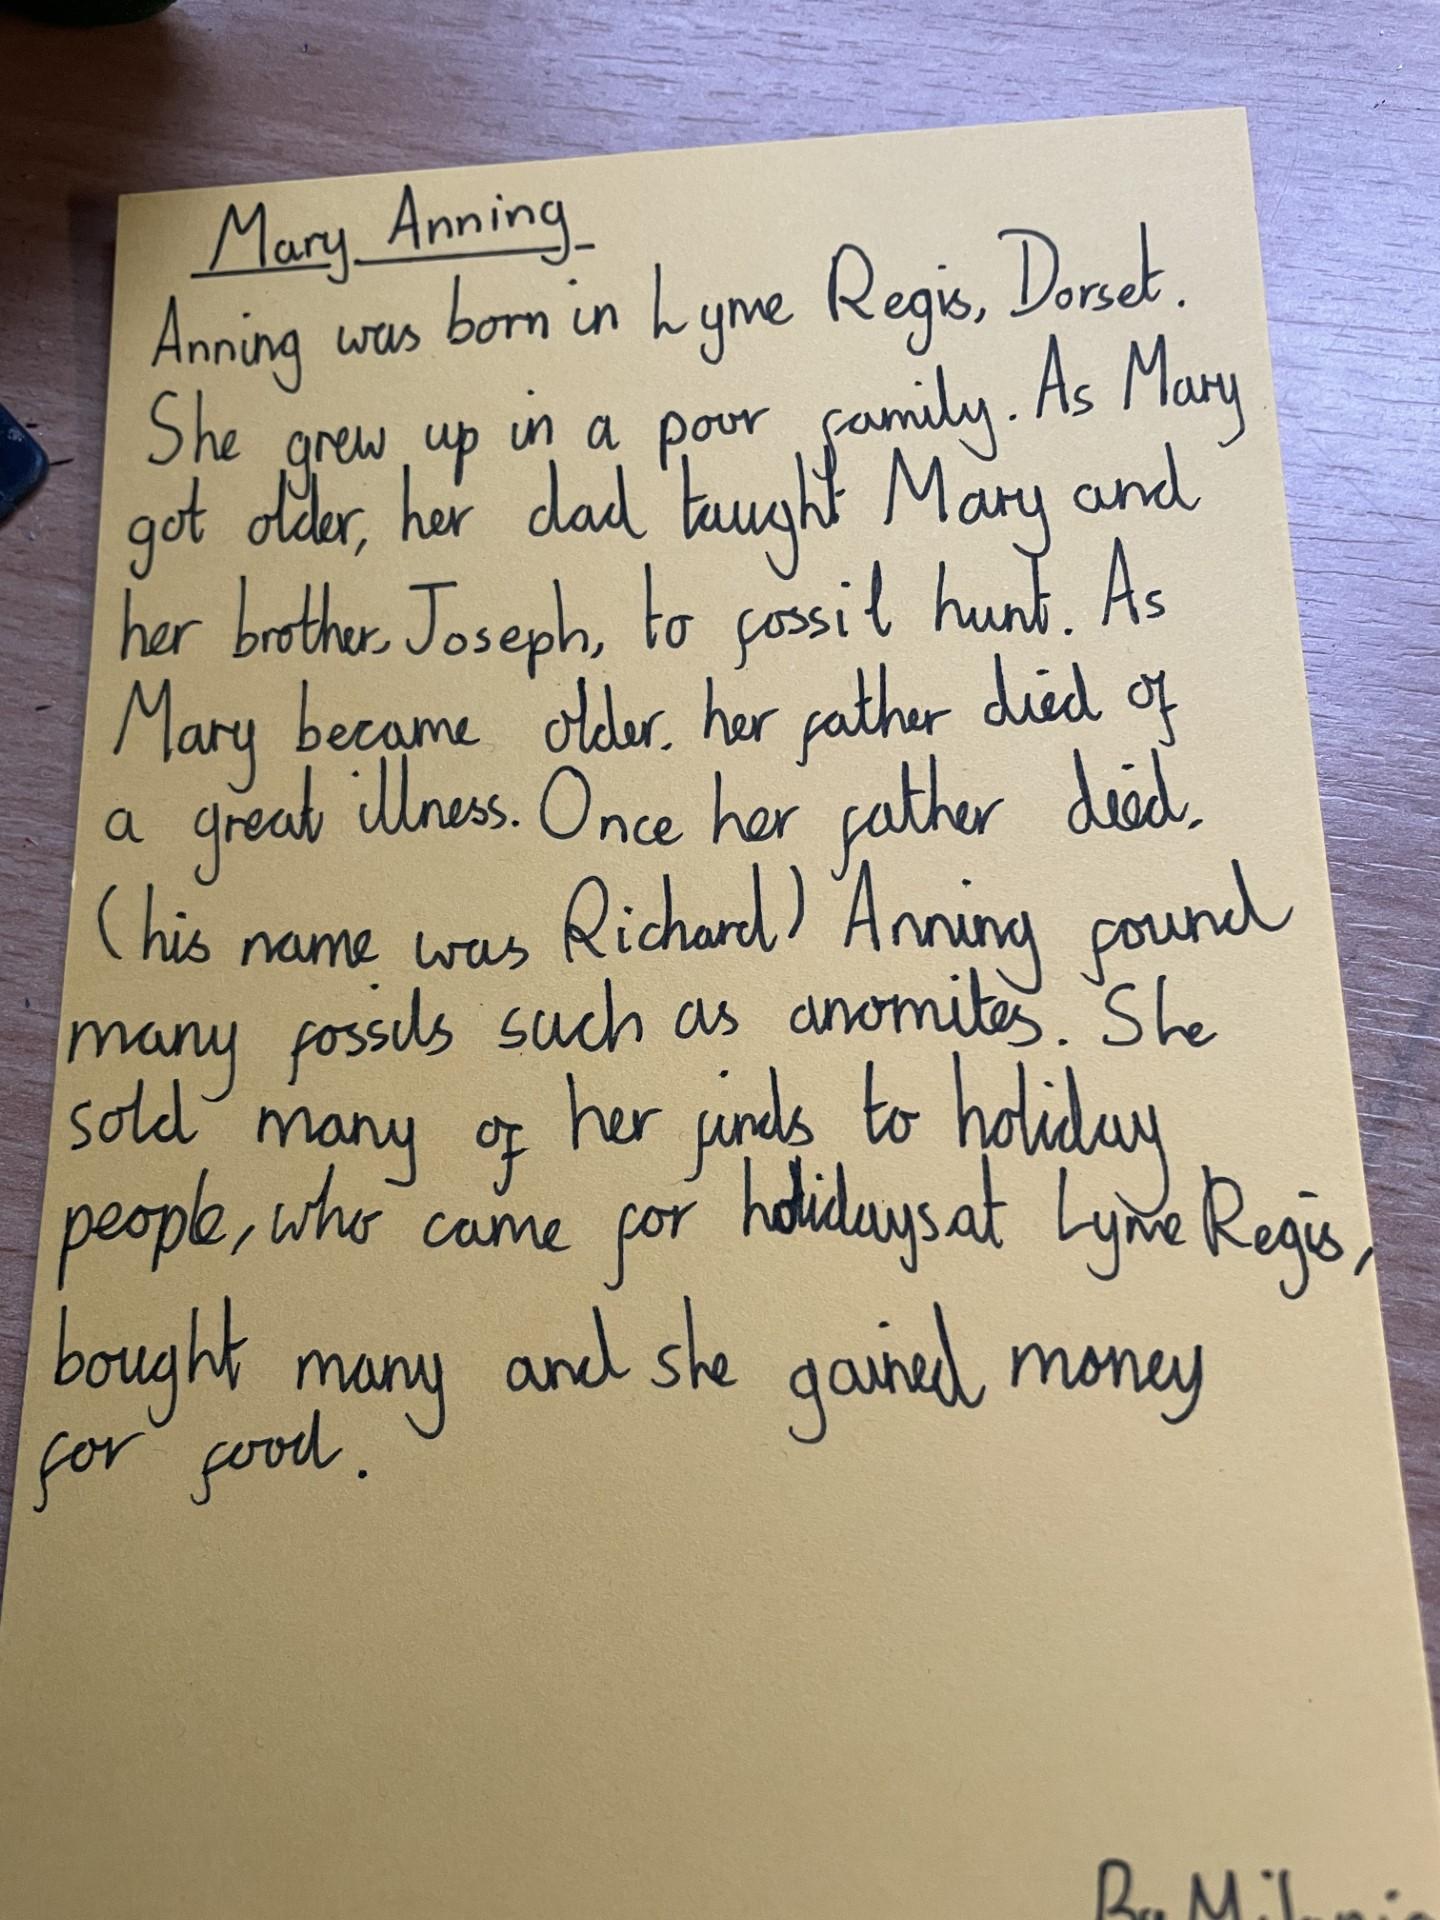 Mary Anning
Anning was born in Lyme Regis, Dorset.
She grew up in a poor family. As Mary
got older, her dad taught Mary and
her brother, Joseph, to fossil hunt. As
Mary became older, her father died of
a great illness. Once her father died,
(his name was Richard) Anning found
many fossils such as anomites. She
sold many of her finds to holiday
people, who came for holidays at Lyme Regis,
bought many and she gained money
for food.
By